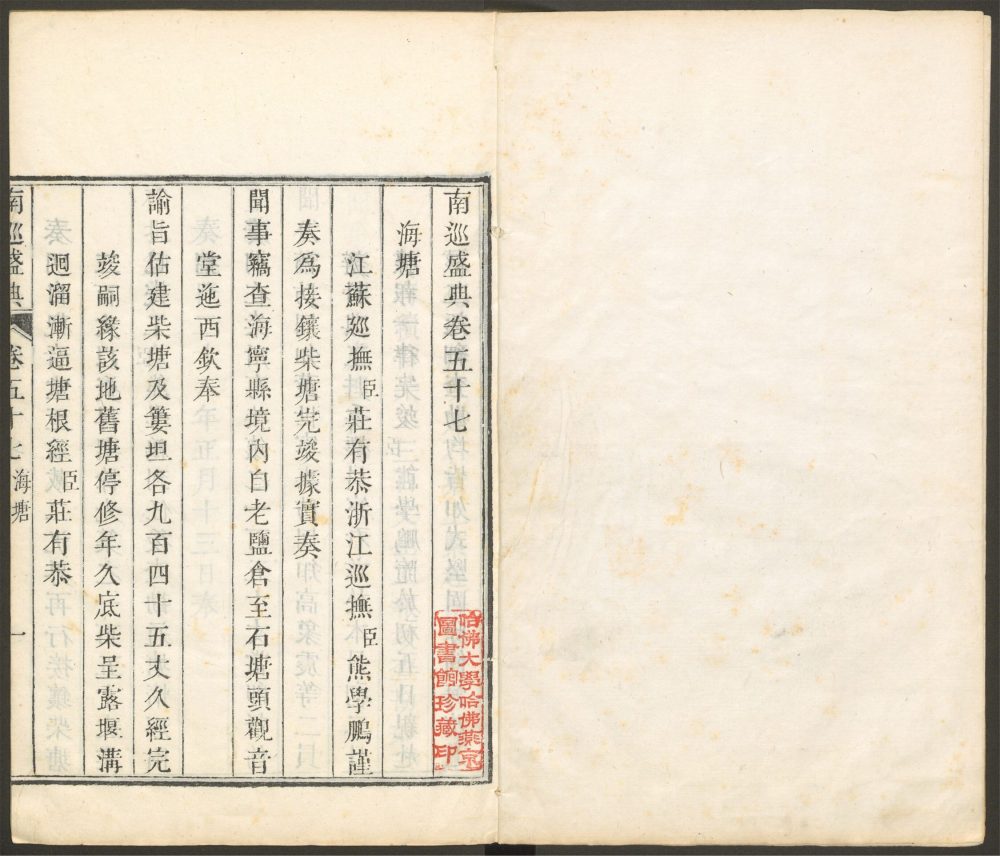 南巡盛典卷五十七
海塘
江蘇巡撫臣莊有恭浙江巡撫臣熊學鵬謹
奏爲接鑲柴塘完竣據實奏
聞事竊查海寧縣境內自老鹽倉至石塘頭觀音
堂迤西欽奉
諭旨估建柴塘及簍坦各九百四十五丈久經完
竣嗣緣該地舊塘停修年久底柴呈露堰溝
迴溜漸逼塘根經臣莊有恭
南巡盛典 卷五十七 海塘 一
哈佛大學哈佛燕京
圖書館珍藏印